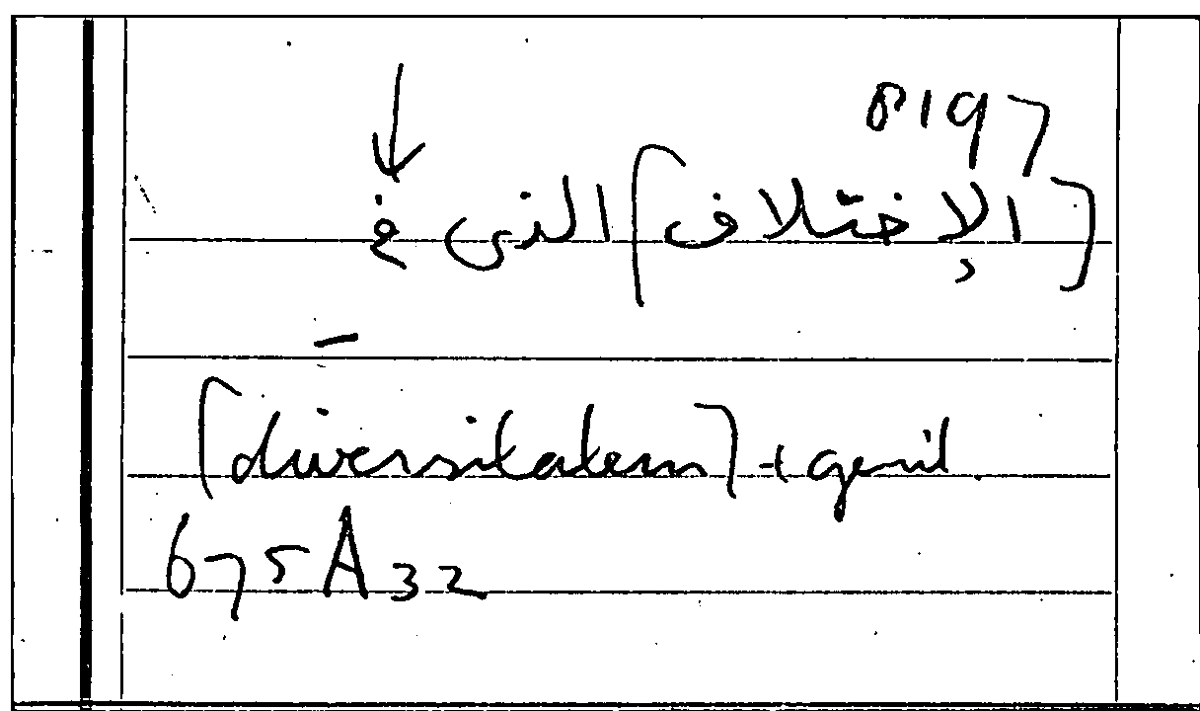 8197
[الإختلاف] الذى في
[diversitatem] + genit
675A32